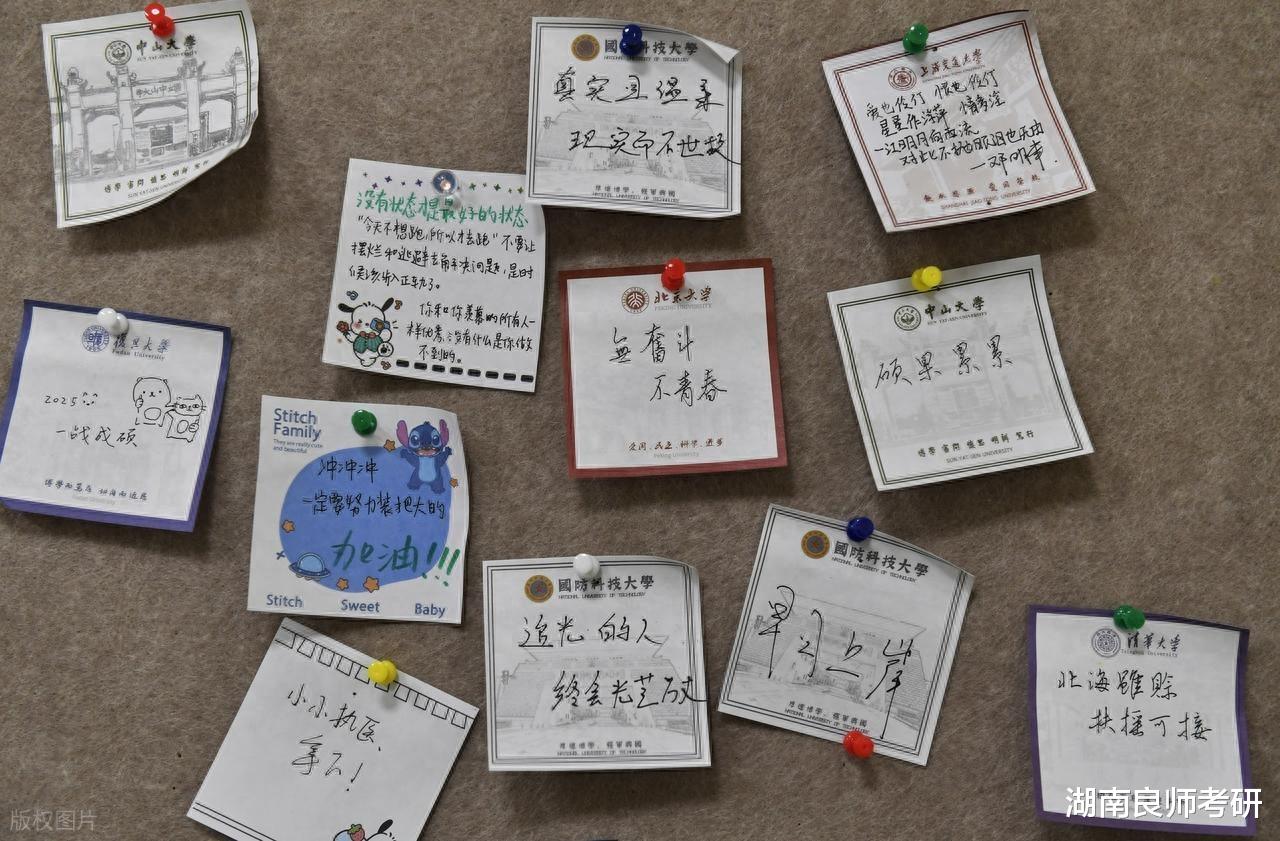 中山大学
SUN YAT-SEN UNIVERSITY
博學 審問 慎思 明辨 篤行
SUN YAT-SEN UNIVERSITY
國防科技大學
NATIONAL UNIVERSITY OF TECHNOLOGY
真实且温柔
现实而不世故
厚德博學，強軍興國
NATIONAL UNIVERSITY OF TECHNOLOGY
上海交通大学
爱也伶仃 恨也伶仃
星星作浮萍 情多淦
一江明月向西流
一邓明華.
飲水思源 愛國榮校
SHANGHAI JIAO TONG UNIVERSITY
没有状态是最好的状态
“今天不想跑，所以才去跑”不要让
摆烂和逃避去解决问题，是时
候该步入正轨了。
你和你羡慕的所有人一
样优秀，没有什么是你做
不到的。
復旦大學
Fudan University
2025
一战成硕
博學而篤志 切問而近思
Fudan University
北京大学
PEKING UNIVERSITY
無奮斗
不青春
爱国、民主、科学、进步
Peking University
中山大学
SUN YAT-SEN UNIVERSITY
硕果累累
博學 審問 慎思 明辨 篤行
SUN YAT-SEN UNIVERSITY
Stitch
Family
They are really cute
and beautiful
冲冲冲
一定要努力装把大的
加油!!!
Stitch Sweet Baby
國防科技大學
NATIONAL UNIVERSITY OF TECHNOLOGY
追光的人
终会光芒万丈
厚德博學，強軍興國
NATIONAL UNIVERSITY OF TECHNOLOGY
國防科技大學
NATIONAL UNIVERSITY OF TECHNOLOGY
早日上岸
厚德博學，強軍興國
NATIONAL UNIVERSITY OF TECHNOLOGY
清華大学
Tsinghua University
北海雖賒
扶摇可接
小小执医、
拿下!
版权图片
湖南良师考研